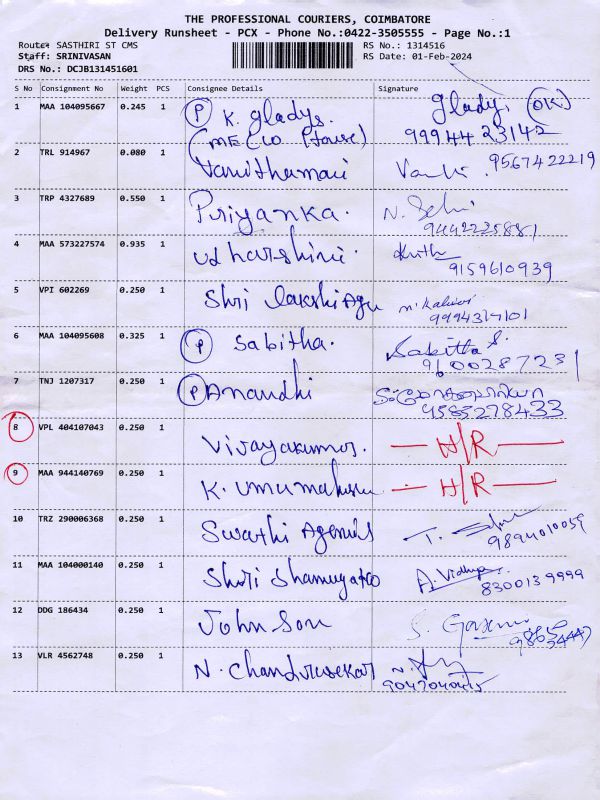 THE PROFESSIONAL COURIERS, COIMBATORE
Delivery Runsheet - PCX - Phone No.:0422-3505555 - Page No.:1
Route: SASTHIRI ST CMS RS No.: 1314516
Staff: SRINIVASAN RS Date: 01-Feb-2024
DRS No.: DCJB131451601
S No Consignment No Weight PCS Consignee Details Signature
1 MAA 104095667 0.245 1 P K. Gladys. Gladys OK
(MECLO House) 99944 23142
2 TRL 914967 0.080 1 Vanithamani 9567422219
3 TRP 4327689 0.550 1 Priyanka. N. Selvi
9442225881
4 MAA 573227574 0.935 1 Udharshini.
9159610939
5 VPI 602269 0.250 1 Shri
6 MAA 104095608 0.325 1 P Sabitha. Sabitha S.
9600287231
7 TNJ 1207317 0.250 1 P Anandhi
9585278433
8 VPL 404107043 0.250 1 Vijayakumar. H/R
9 MAA 944140769 0.250 1 K. H/R
10 TRZ 290006368 0.250 1 Swathi Agencies T.
9894010059
11 MAA 104000140 0.250 1 Shri A. Vidhya
8300139999
12 DDG 186434 0.250 1 Johnson S.
13 VLR 4562748 0.250 1 N. Chandrasekar N.